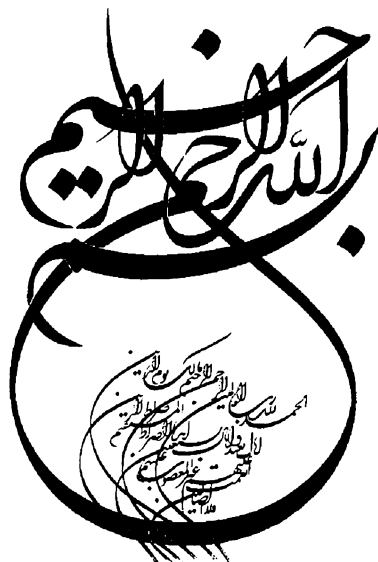 بسم الله الرحمن الرحیم
الحمد لله رب العالمین الرحمن الرحیم مالک یوم الدین
ایاک نعبد و ایاک نستعین اهدنا الصراط المستقیم صراط الذین
انعمت علیهم غیر المغضوب علیهم
و لا الضالین